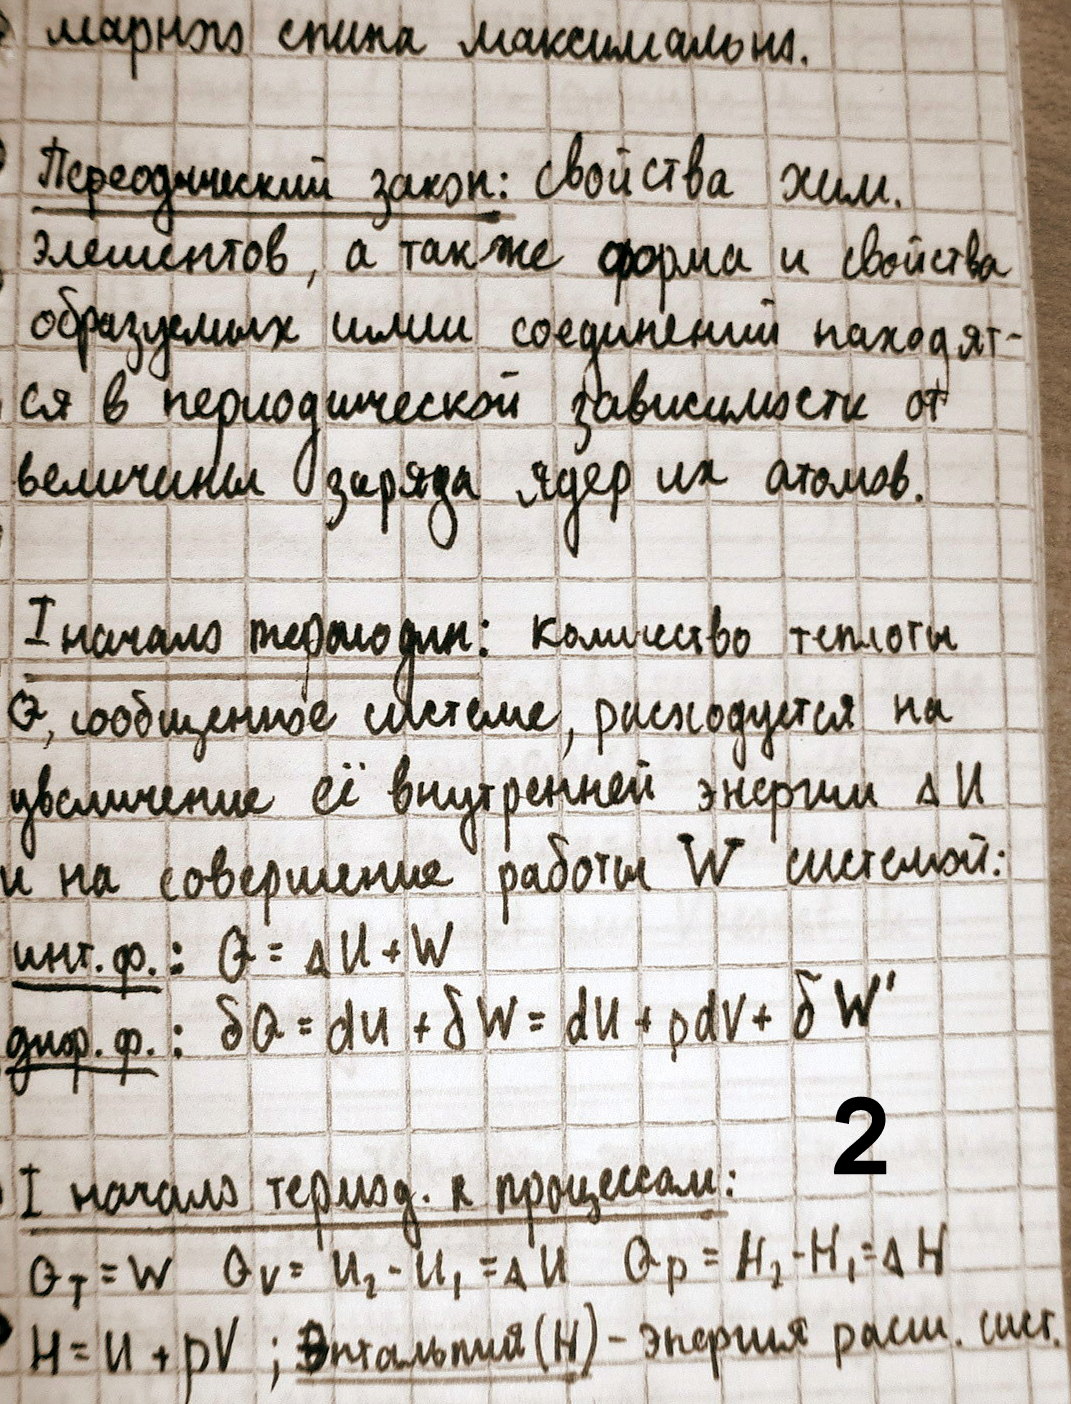 марного спина максимально.
Переодический закон: свойства хим.
элементов, а также форма и свойства
образуемых ими соединений находят-
ся в периодической зависимости от
величины заряда ядер их атомов.
I начало термодин: количество теплоты
Q, сообщенное системе, расходуется на
увеличение её внутренней энергии ΔU
и на совершение работы W системой:
инт. ф.: Q = ΔU + W
диф. ф.: δQ = dU + δW = dU + pdV + δW'
2
I начало термод. к процессам:
Q_T = W Q_V = U₂ - U₁ = ΔU Q_p = H₂ - H₁ = ΔH
H = U + pV ; Энтальпия (H) - энергия расш. сист.